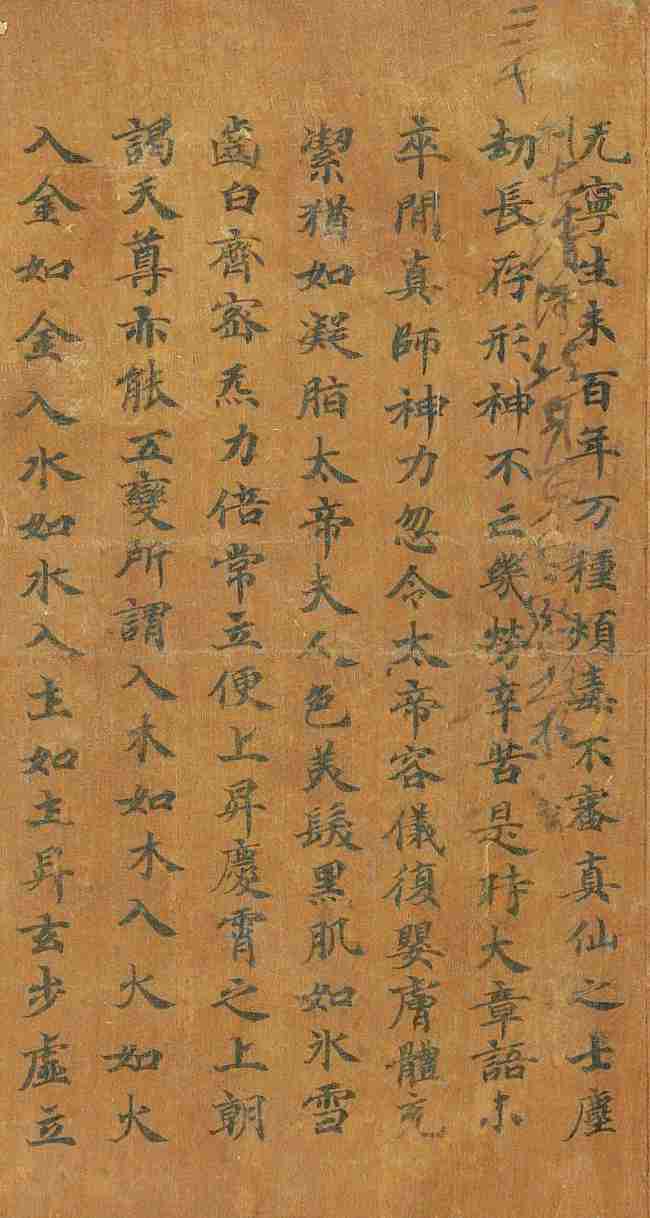 无寧生来百年万種煩毒不審真仙之士塵
劫長存形神不亡幾勞辛苦是時大章語未
卒間真師神力忽令太帝容儀復嬰膚體充
潔猶如凝脂太帝夫人色美髮黑肌如氷雪
齒白齊密炁力倍常立便上昇慶霄之上朝
謁天尊亦能五變所謂入木如木入火如火
入金如金入水如水入土如土昇玄步虛立